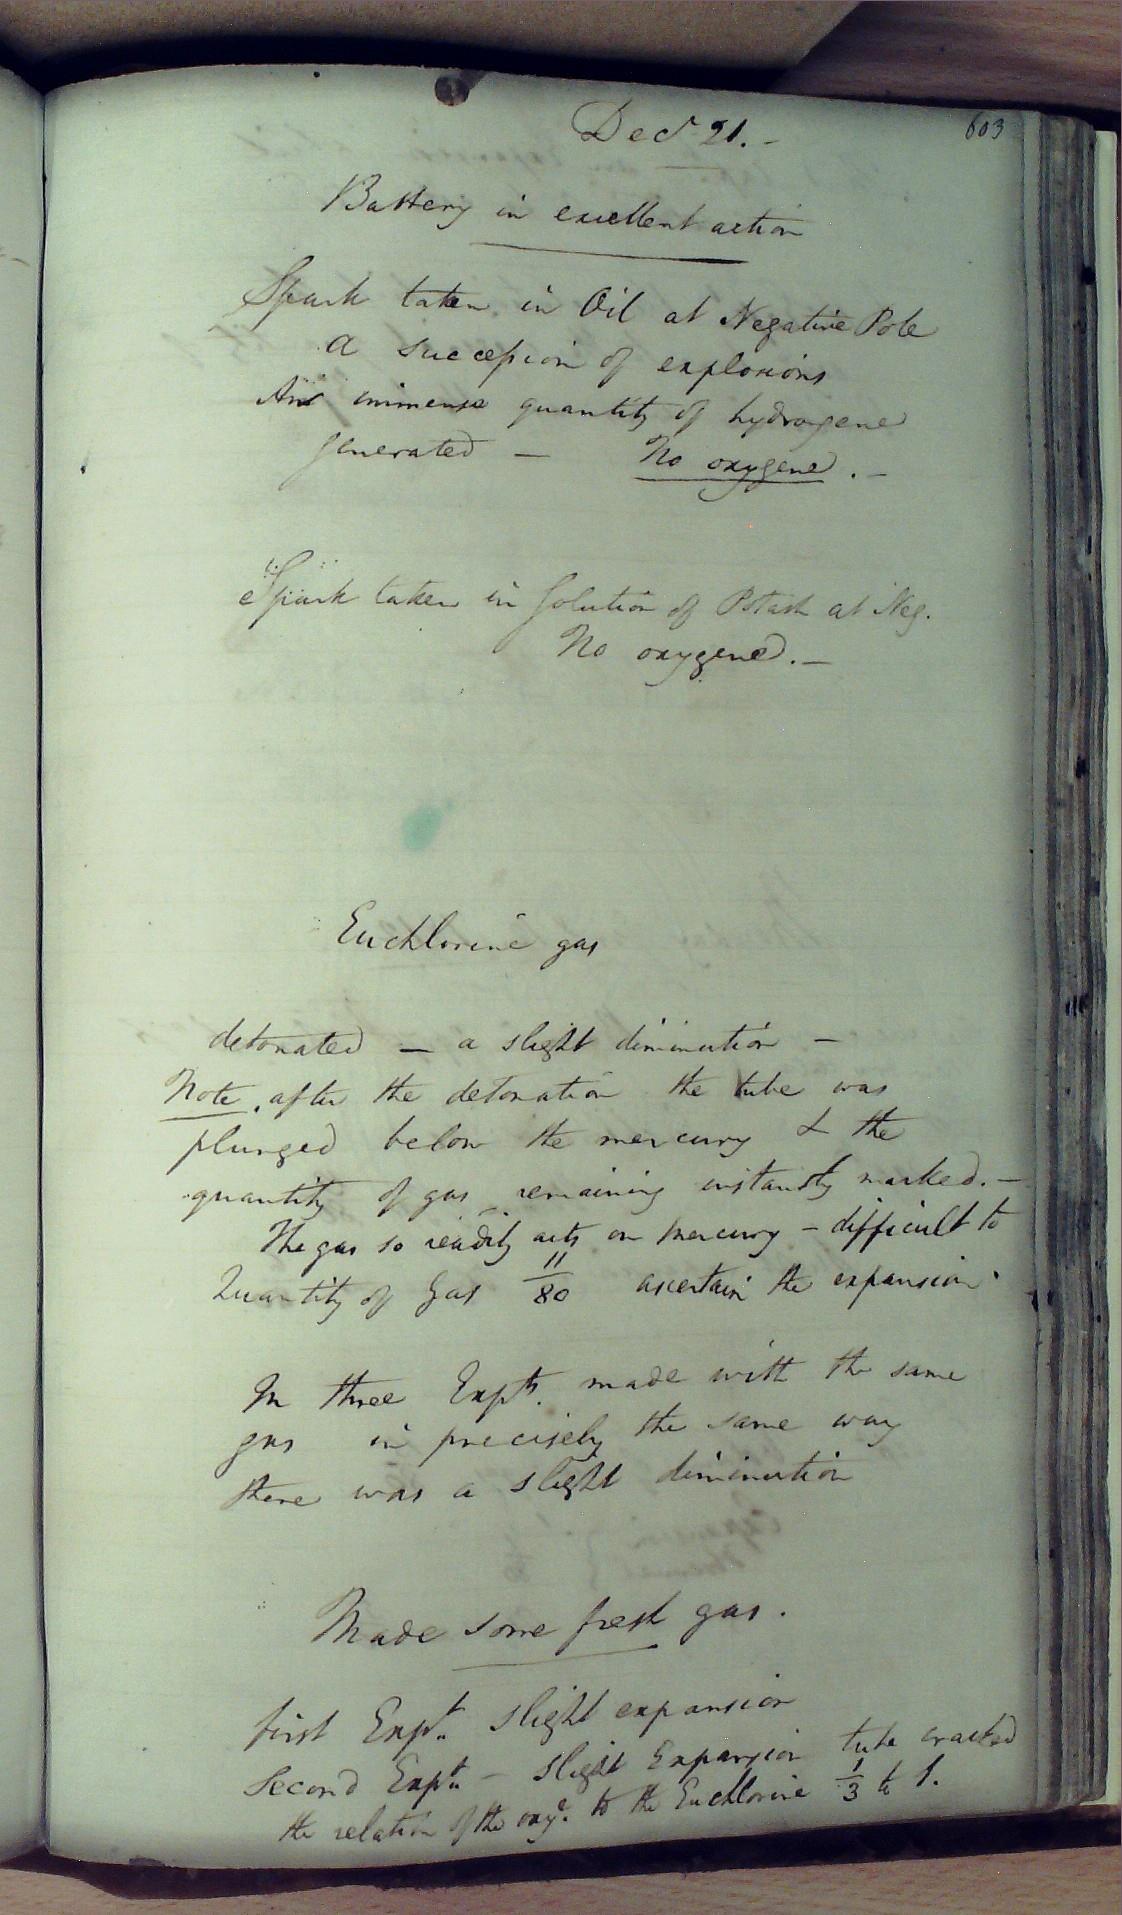 603
Decr 21. -
Battery in excellent action
Spark taken in Oil at Negative Pole
a succession of explosions
An immense quantity of hydrogene
generated - No oxygene. -
Spark taken in Solution of Potash at Neg.
No oxygene. -
Euchlorine gas
detonated - a slight diminution -
Note. after the detonation the tube was
plunged below the mercury & the
quantity of gas remaining instantly marked. -
The gas so readily acts on mercury - difficult to
Quantity of Gas 11/80 ascertain the expansion.
In three Expts. made with the same
gas in precisely the same way
there was a slight diminution
Made some fresh gas.
first Expt. slight expansion
Second Expt. - slight Expansion tube cracked
the relation of the oxye. to the Euchlorine 1/3 to 1.